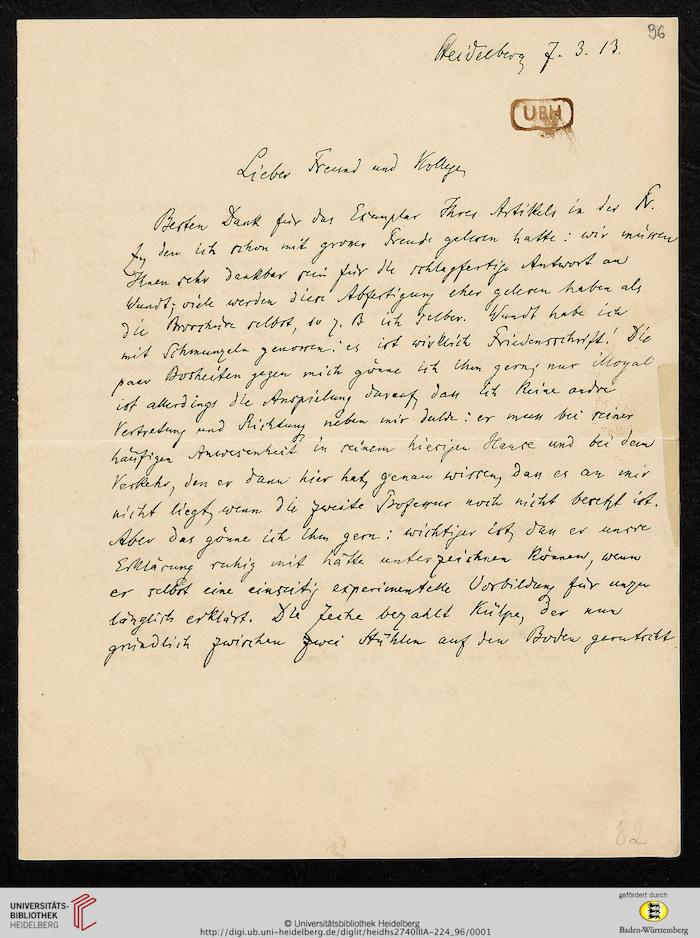 96
Heidelberg 7. 3. 13.
UBH
Lieber Freund und Kollege,
Besten Dank für das Exemplar Ihres Artikels in der Fr.
Zg, den ich schon mit grosser Freude gelesen hatte: wir müssen
Ihnen sehr dankbar sein für die schlagfertige Antwort an
Wundt; viele werden diese Abfertigung eher gelesen haben als
die Broschüre selbst, so z. B. ich selber. Wundt habe ich
mit Schmunzeln genossen: es ist wirklich Friedensschrift! Die
paar Bosheiten gegen mich gönne ich ihm gern; nur illoyal
ist allerdings die Anspielung darauf, dass ich keine andre
Vertretung und Richtung neben mir dulde: er muss bei seiner
häufigen Anwesenheit in seinem hiesigen Hause und bei dem
Verkehr, den er dann hier hat, genau wissen, dass es an mir
nicht liegt, wenn die zweite Professur noch nicht besetzt ist.
Aber das gönne ich ihm gern: wichtiger ist, dass er unsre
Erklärung ruhig mit hätte unterzeichnen können, wenn
er selbst eine einseitig experimentelle Vorbildung für unzu
länglich erklärt. Die Zeche bezahlt Külpe, der nun
gründlich zwischen zwei Stühlen auf den Boden gerutscht
82
UNIVERSITÄTS-
BIBLIOTHEK
HEIDELBERG
© Universitätsbibliothek Heidelberg
http://digi.ub.uni-heidelberg.de/diglit/heidhs2740IIIA-224_96/0001
gefördert durch
Baden-Württemberg